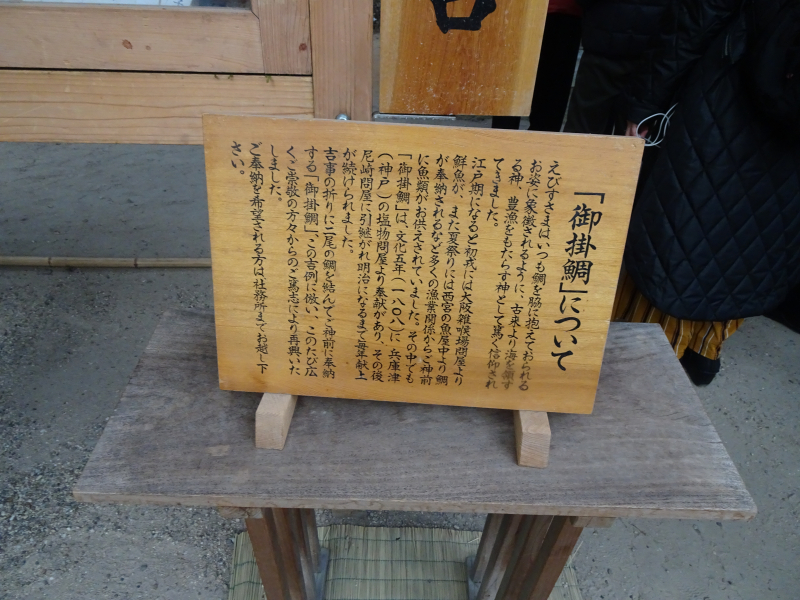 「御掛鯛」について
えびすさまはいつも鯛を脇に抱えておられる
お姿に象徴されるように、古来より海を領す
る神、豊漁をもたらす神として篤く信仰され
てきました。
江戸期になると初戎には大阪雑喉場問屋より
鮮魚が、また夏祭りには西宮の魚屋中より鯛
が奉納されるなど多くの漁業関係からご神前
に魚類がお供えされていました。その中でも
「御掛鯛」は、文化五年(一八〇八)に兵庫津
(神戸)の塩物問屋より奉献があり、その後
尼崎問屋に引継がれ明治になるまで毎年献上
が続けられました。
吉事の折りに二尾の鯛を結んでご神前に奉納
する「御掛鯛」、この吉例に倣い、このたび広
くご崇敬の方々からのご篤志により再興いた
しました。
ご奉納を希望される方は社務所までお越し下
さい。